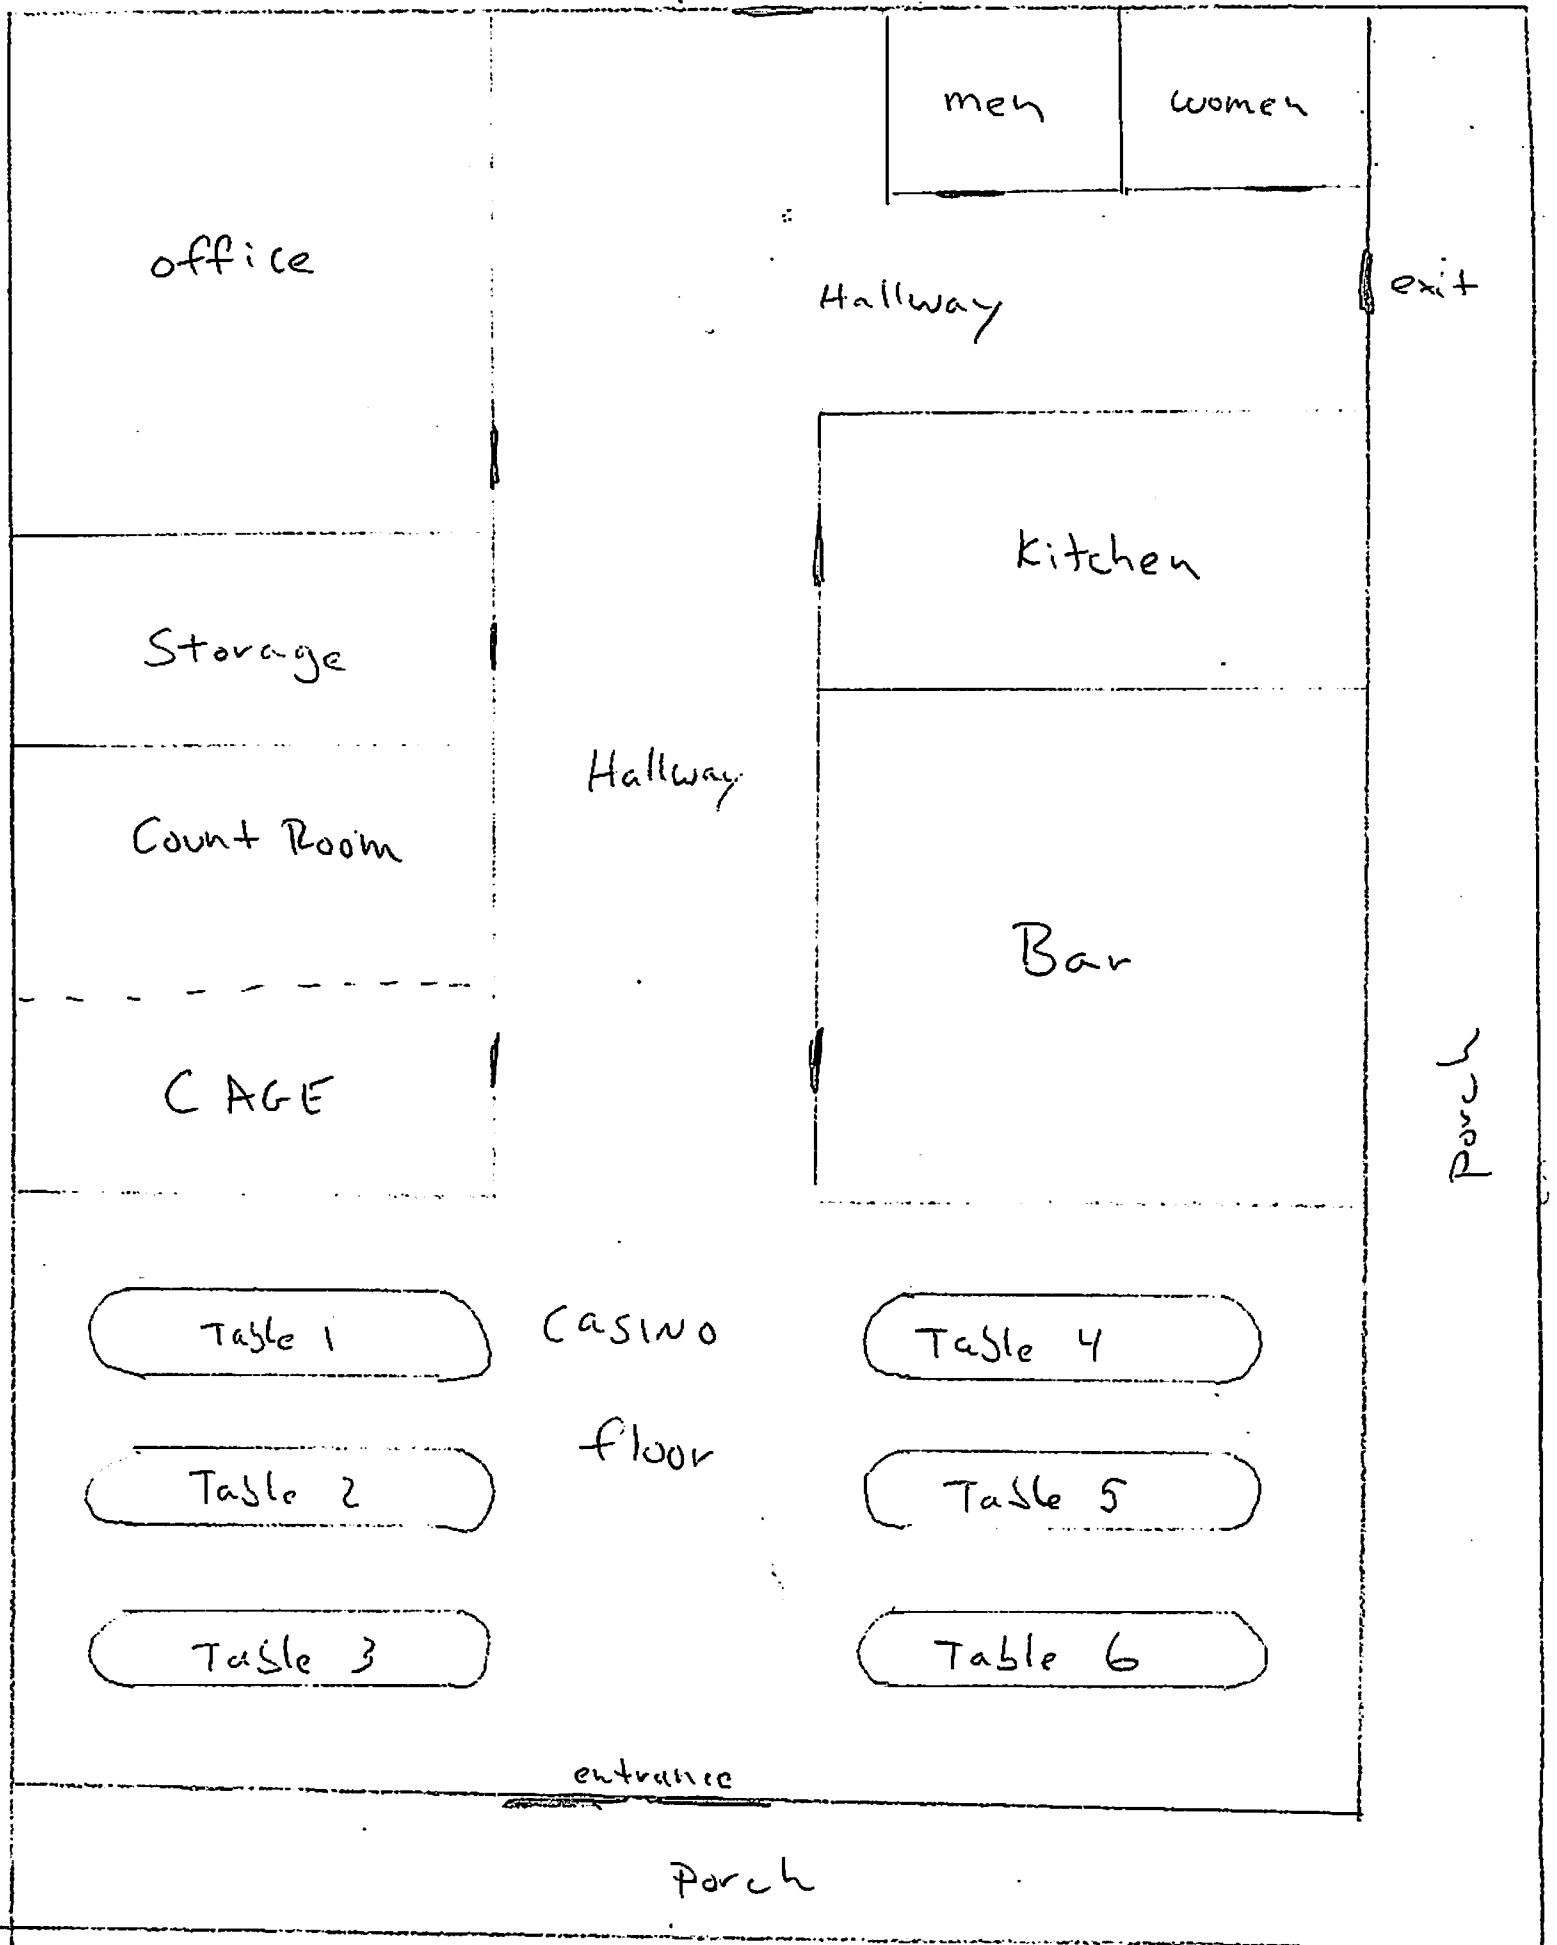 men
women
office
Hallway
exit
Kitchen
Storage
Hallway
Count Room
Bar
CAGE
Porch
Table 1
CASINO
Table 4
floor
Table 2
Table 5
Table 3
Table 6
entrance
Porch